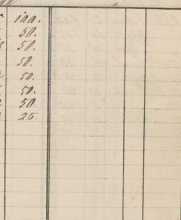 100.
50.
50.
50.
50.
50.
50
25.